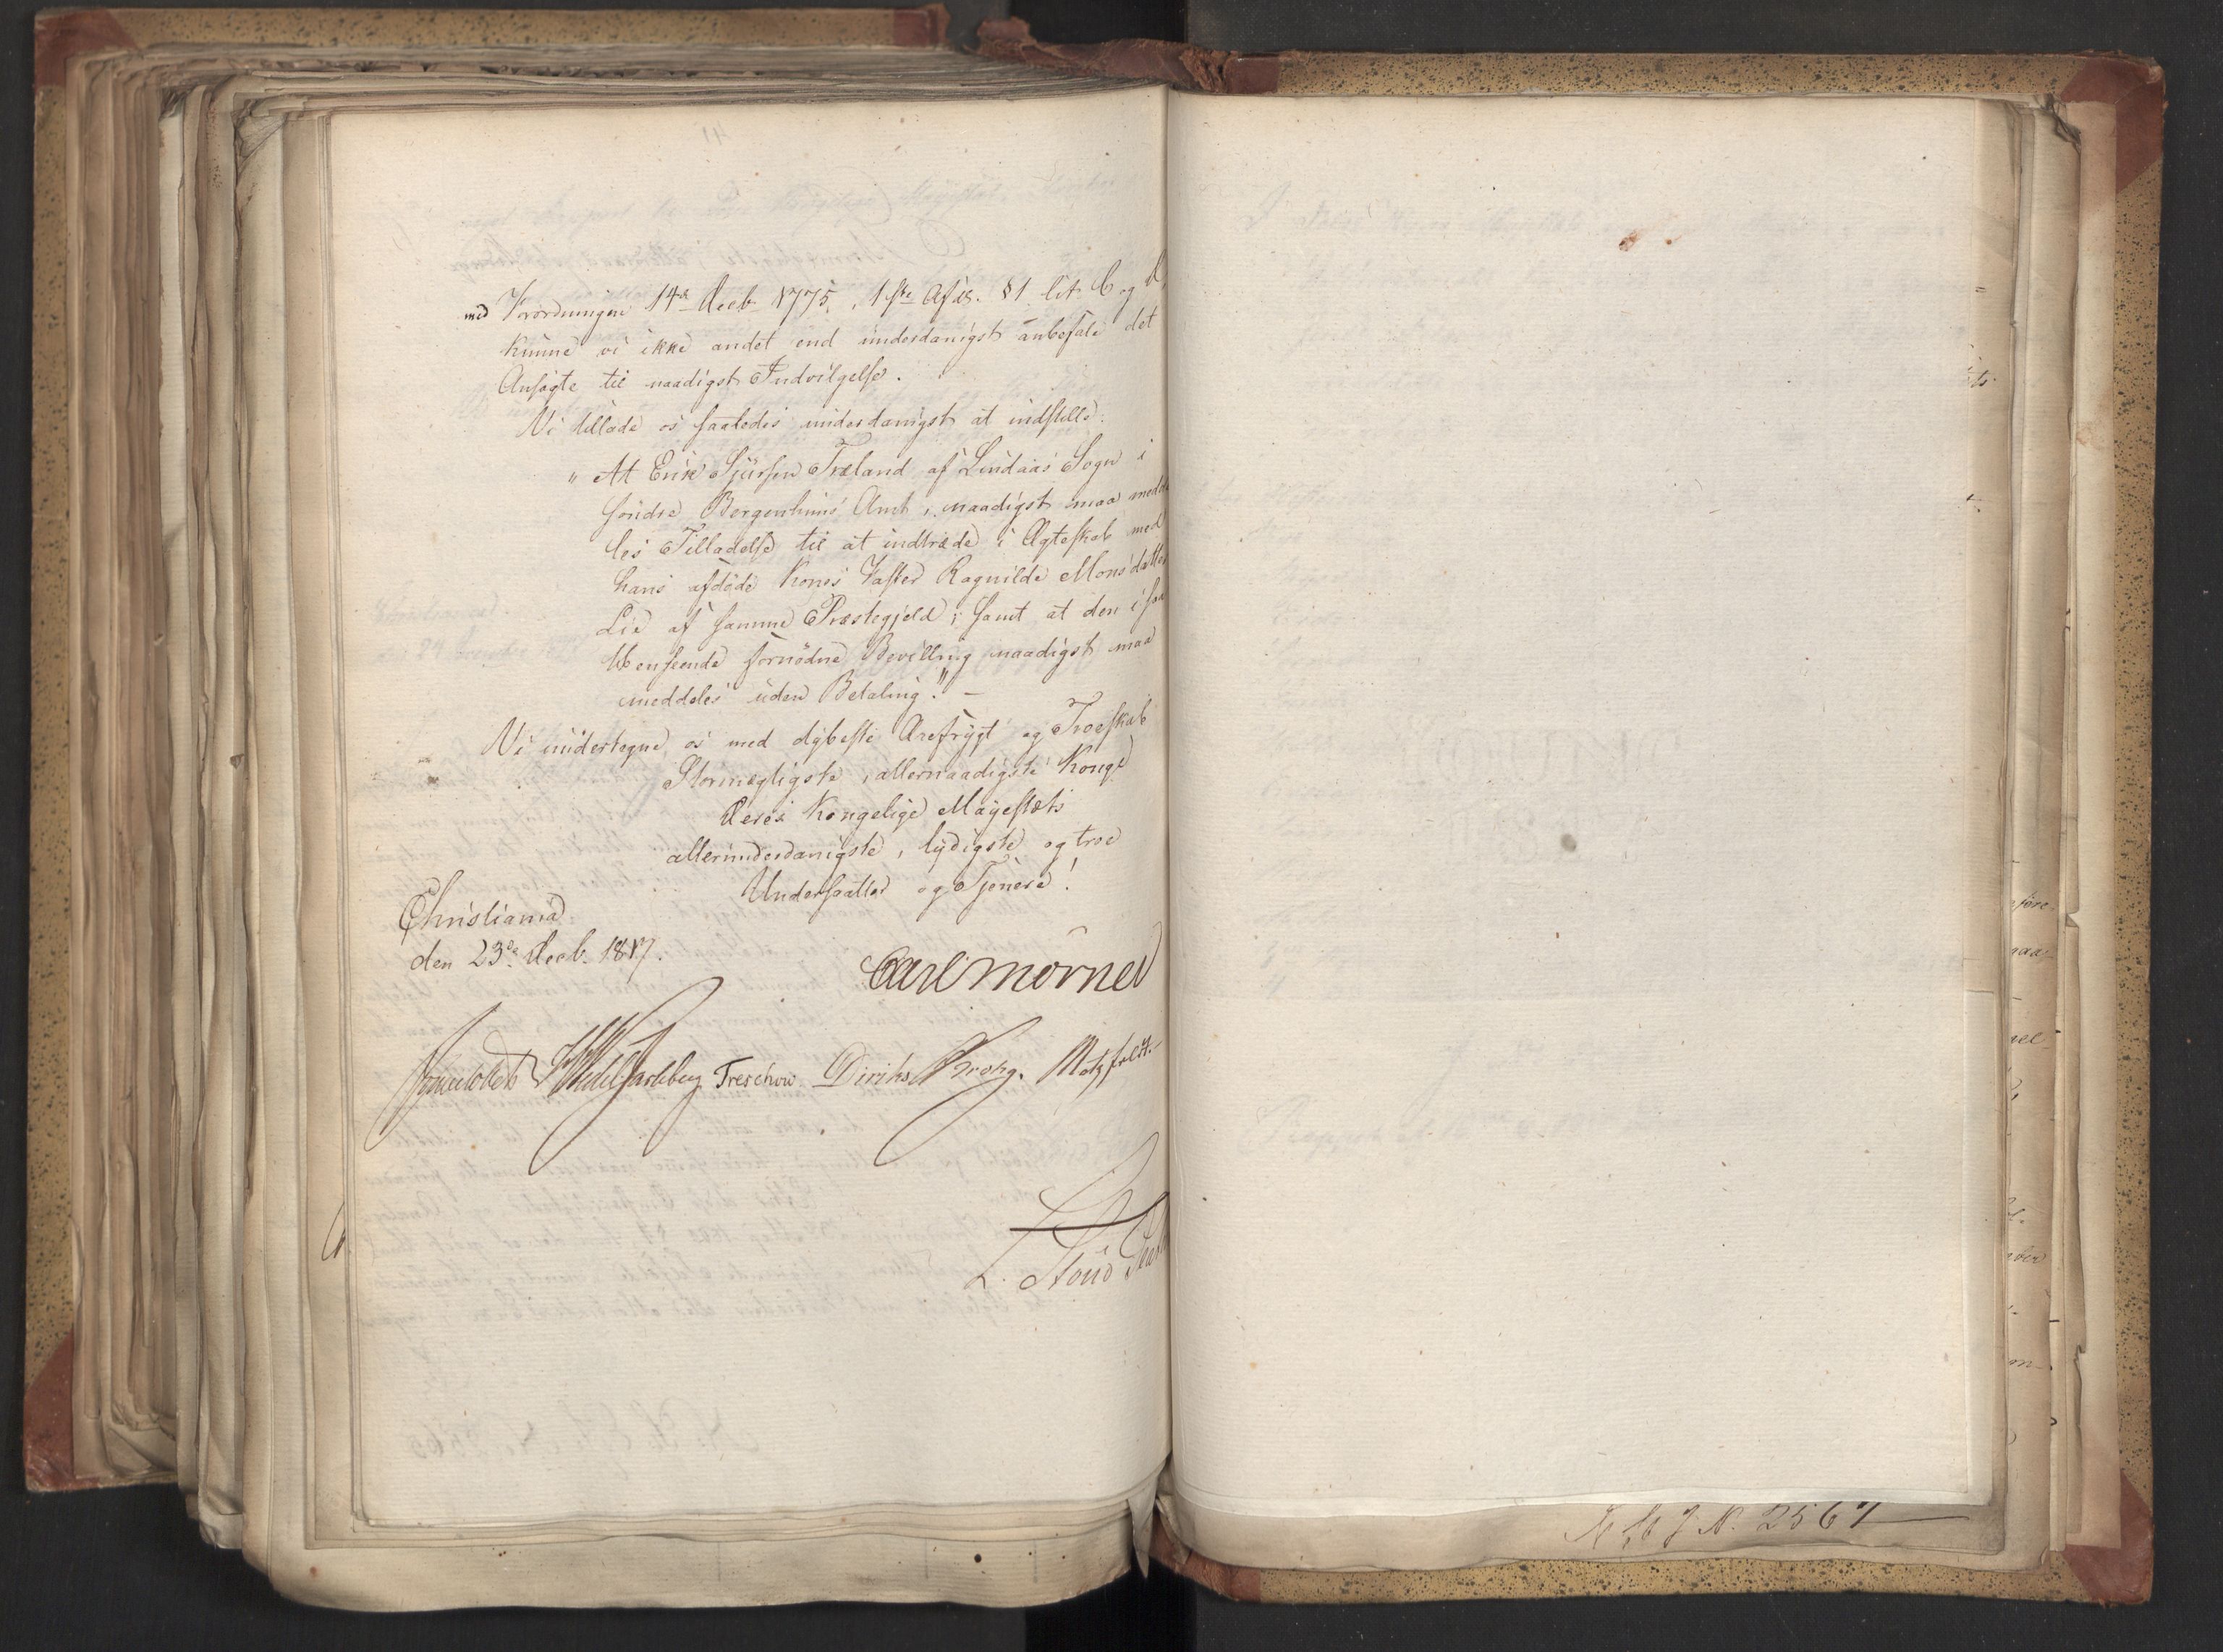 med Forordningen 14de Decb 1775, 1ste Afds. §1 lit C og D,
kunne vi ikke andet end underdanigst anbefale det
Ansøgte til naadigst Indvilgelse.
Vi tillade os saaledes underdanigst at indstille:
"At Erik Sjursen Træland af Lindaas Sogn i
søndre Bergenhuus Amt, naadigst maa medde
les Tilladelse til at indtræde i Ægteskab med
hans afdøde Kones Faster Ragnilde Monsdatter
Lie af samme Præstegjeld; samt at den i saa
Henseende fornødne Bevilling naadigst maa
meddeles uden Betaling." –
Vi undertegne os med dybeste Ærefrygt og Troeskab
Stormægtigste, allernaadigste Konge
Deres Kongelige Mayestæts
allerunderdanigste, lydigste og troe
Undersaatter og Tjenere!
Christiania
den 23de Decb. 1817.
Carl Mörner
Sommerfeldt HWedelJarlsberg Treschow Diriks Krohg. Motzfeldt.
L. Stoud
N. 2567